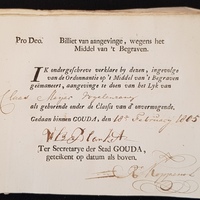 Pro Deo. Billiet van aangevinge, wegens het
Middel van 't Begraven.
IK ondergeschreve verklare by dezen, ingevolge
van de Ordonnantie op 't Middel van 't Begraven
geëmaneert, aangevinge te doen van het Lyk van
Claas
als gehorende onder de Classis van d'onvermogende.
Gedaan binnen GOUDA, den 18e February 1805
Ter Secretarye der Stad GOUDA,
geteikent op datum als boven.